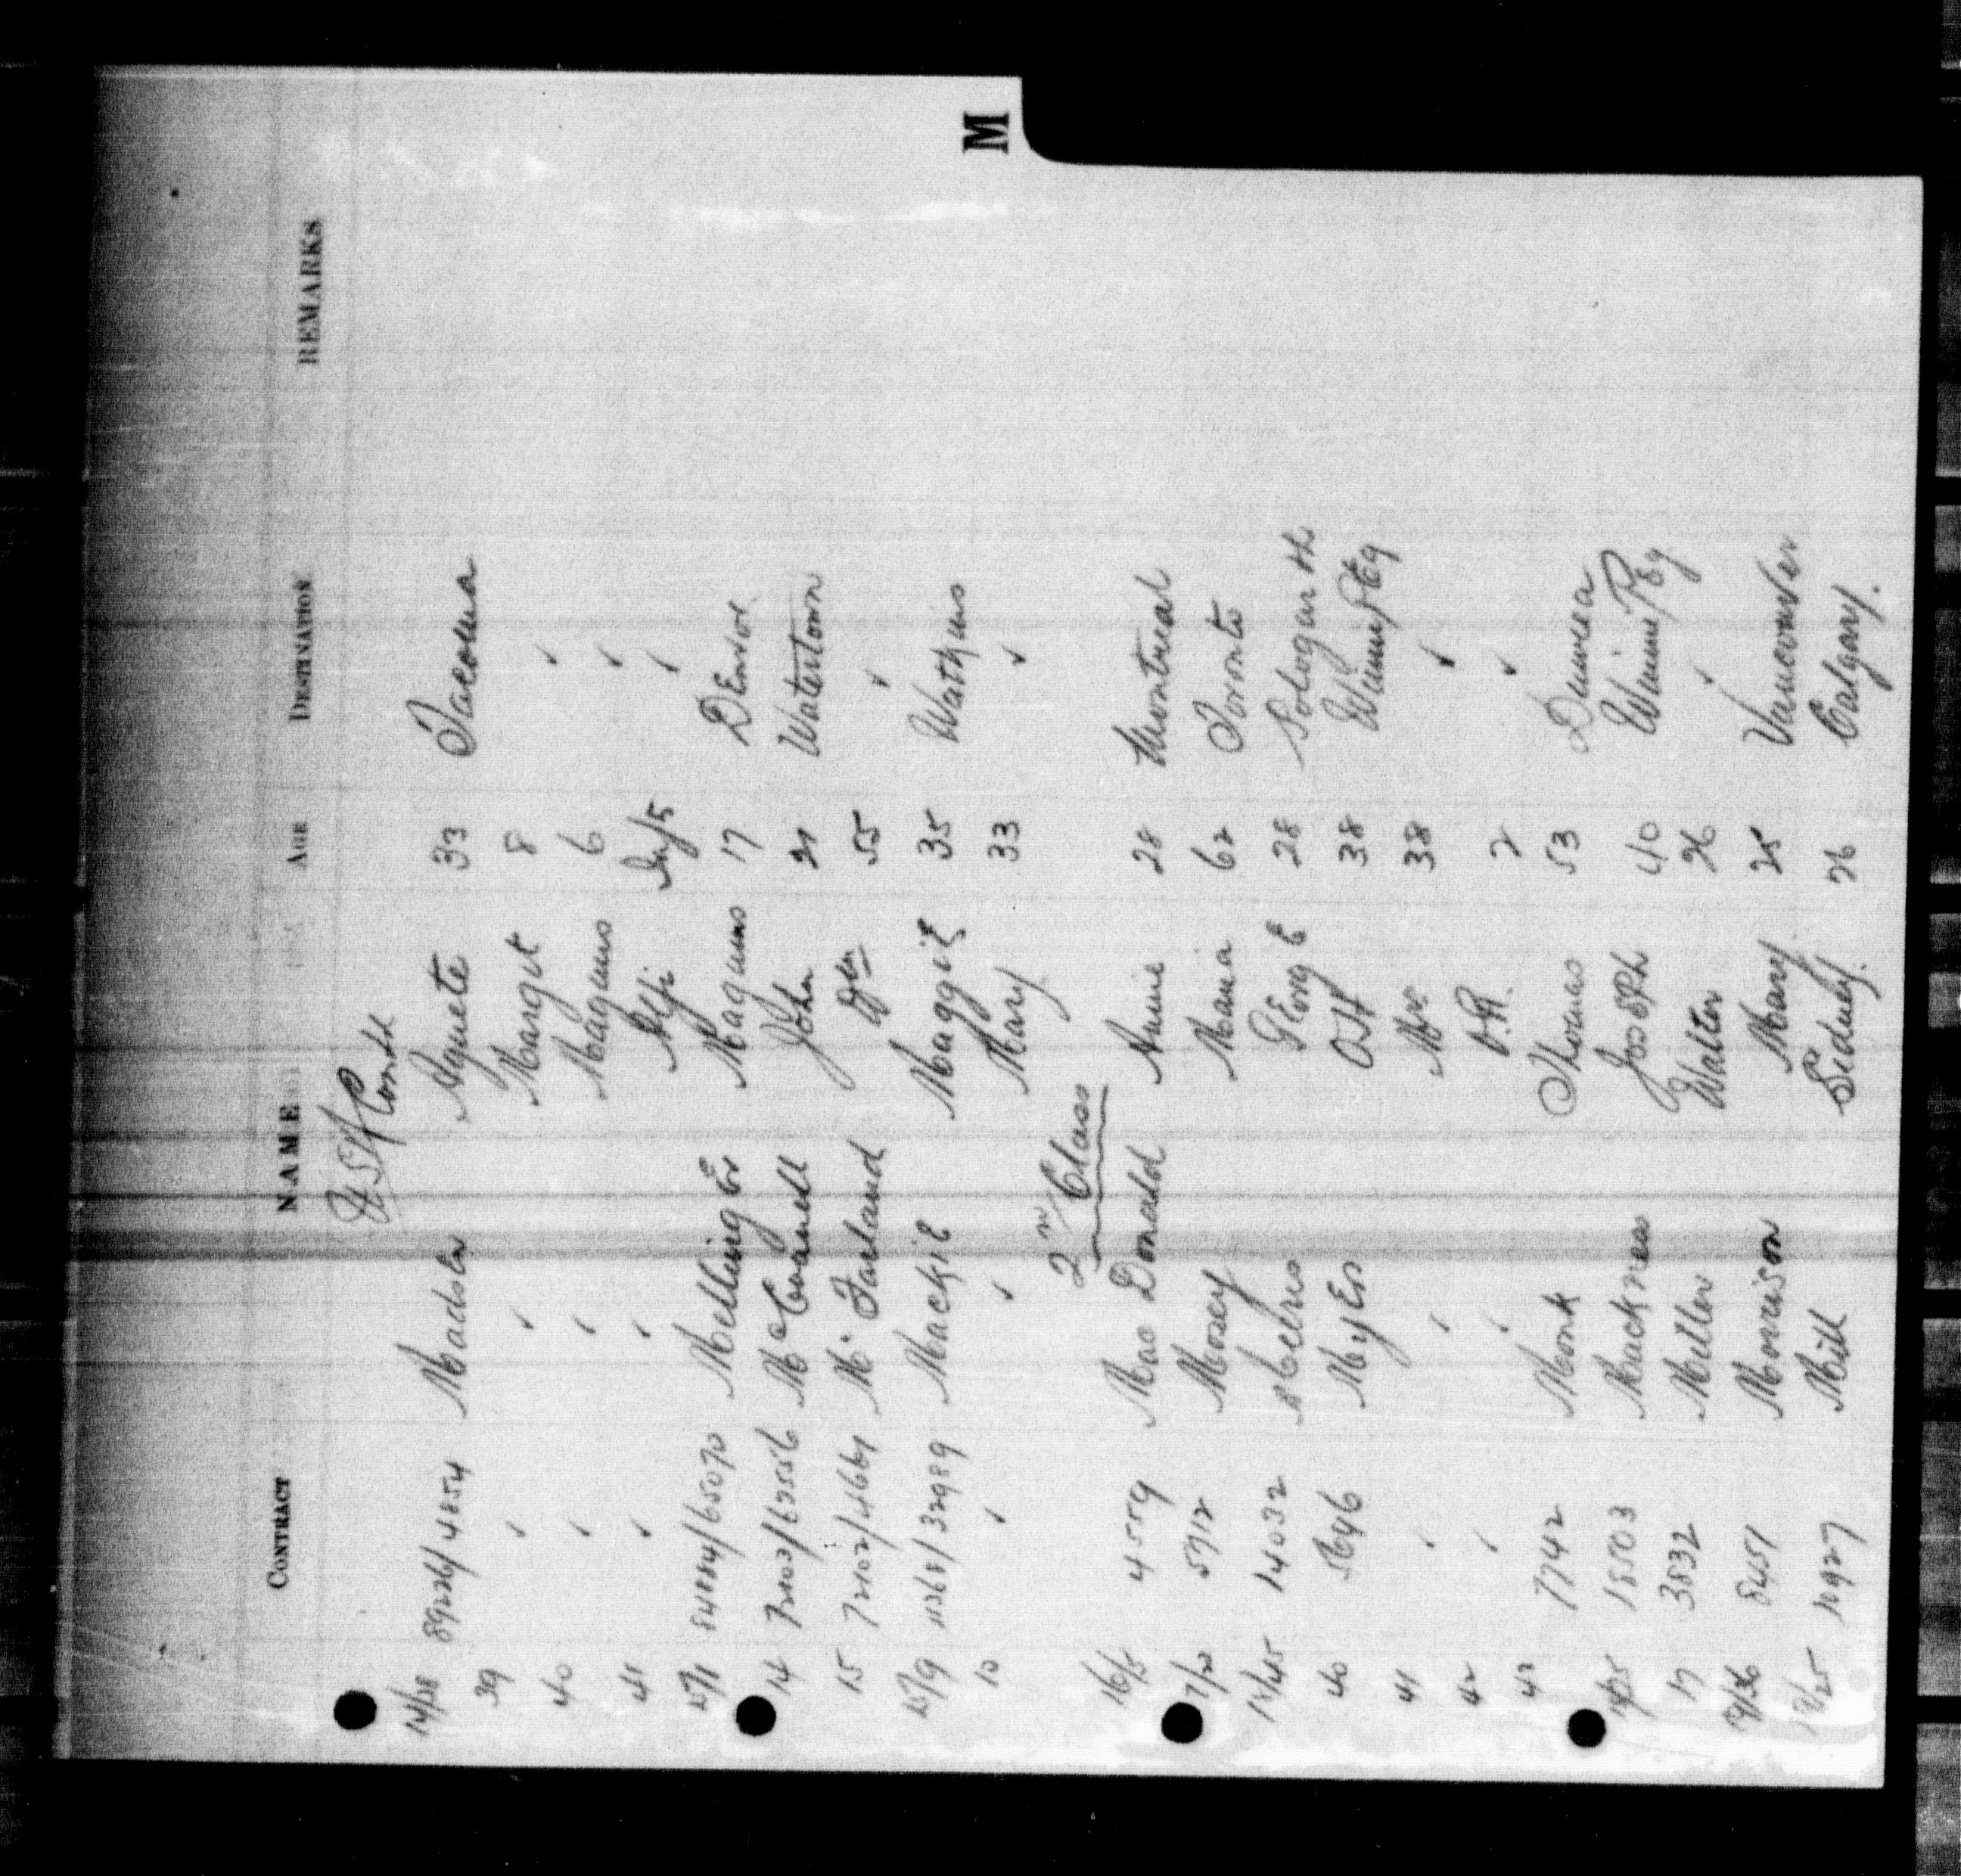 M
CONTRACT NAME AGE DESTINATION REMARKS
Contd
14/38 89226/4854 Madsen Agnete 33 Tacoma
39 ✓ ✓ Marget 8 ✓
40 ✓ ✓ Magnus 6 ✓
41 ✓ ✓ Alfi Inf/5 ✓
27/1 84884/65070 Mellinger Magnus 17 Denver
14 72103/63556 McConnell John 21 Watertown
15 72102/4664 Mc Farland 55 ✓
27/9 11368/32989 Mackie Maggie 35 Watkins
10 ✓ ✓ Mary 33 ✓
2nd Class
16/5 4559 Mac Donald Annie 28 Montreal
7/20 5912 Mosey Maria 62 Toronto
14032 George E 28
40 5646 Myers O H 38 Winnipeg
41 ✓ ✓ Mrs 38 ✓
42 ✓ ✓ 2 ✓
43 7742 Monk Thomas 53
15503 Mackness Joseph 40 Winnipeg
17 3532 Miller Walter 26 ✓
9/36 8451 Morrison Mary 25 Vancouver
10927 Mill Sidney. 26 Calgary.